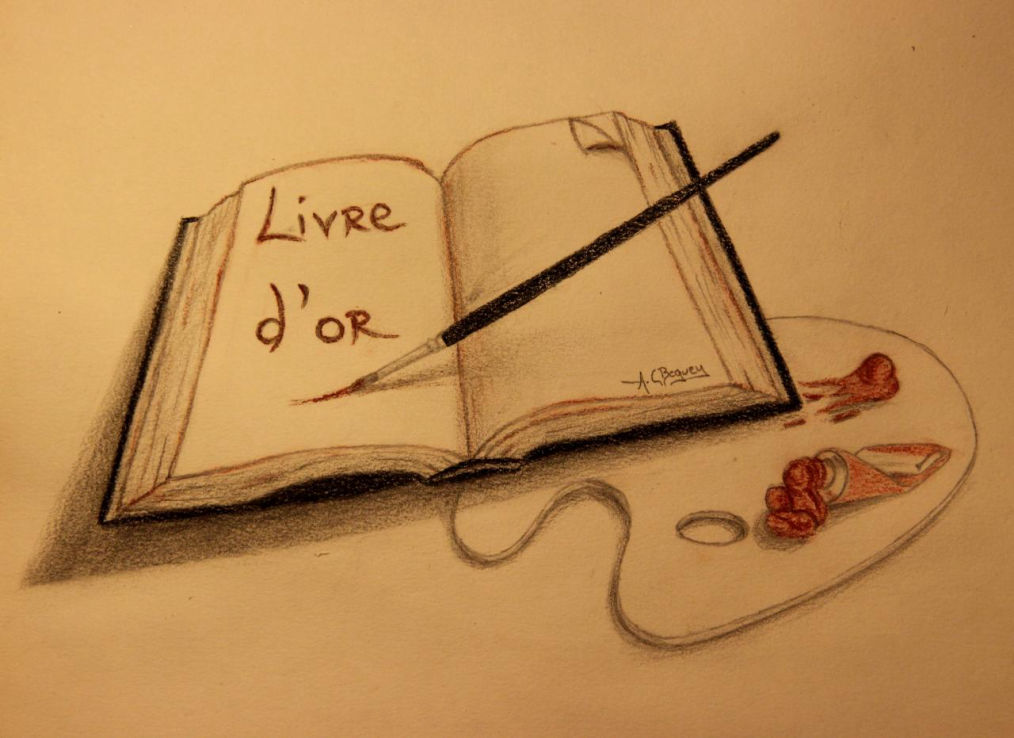 Livre
d'or
A. G Beguey